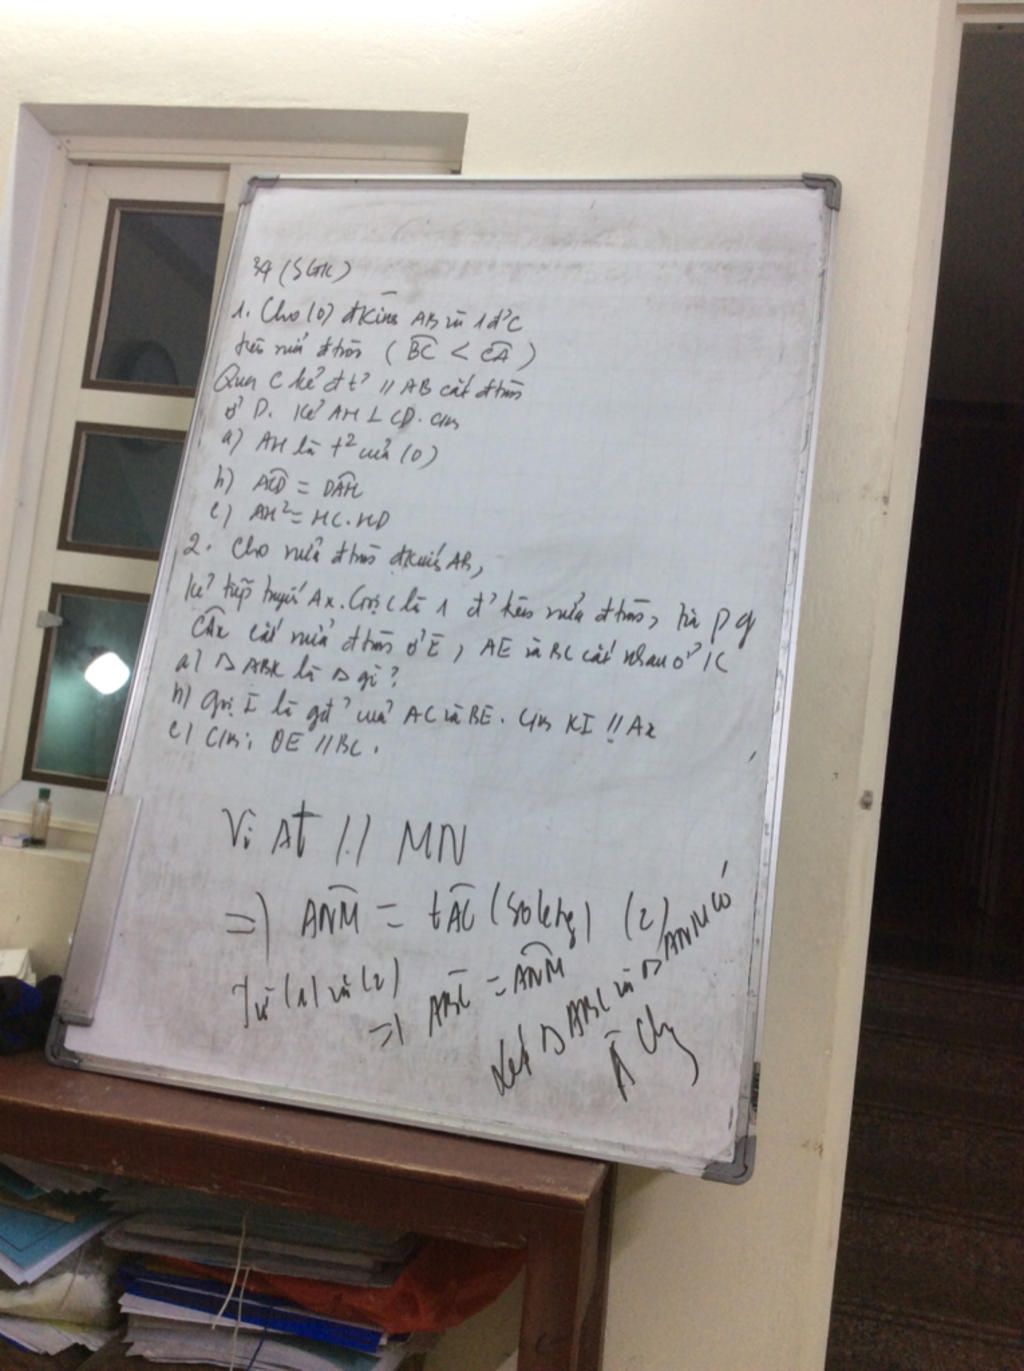 34 (SGK)
1. Cho (O) đkính AB và 1 đ' C
trên nửa đtròn (BC < CA)
Qua C kẻ đt' // AB cắt đtròn
ở D. Kẻ AH ⊥ CD. Cm
a) AH là t² của (O)
b) ACD = DAH
c) AH² = HC.HD
2. Cho nửa đtròn đkính AB,
kẻ tiếp tuyến Ax. Gọi C là 1 đ' trên nửa đtròn, tia p g
CAx cắt nửa đtròn ở E, AE và BC cắt nhau ở K
a) Δ ABK là Δ gì?
b) Gọi I là gđ' của AC và BE. Cm KI // Ax
c) Cm: OE // BC.
Vì At // MN
=) ANM = tAC (soletg) (2)
Từ (1) và (2)
=) ABC = ANM
Xét Δ ABC và Δ ANM có
Â chg